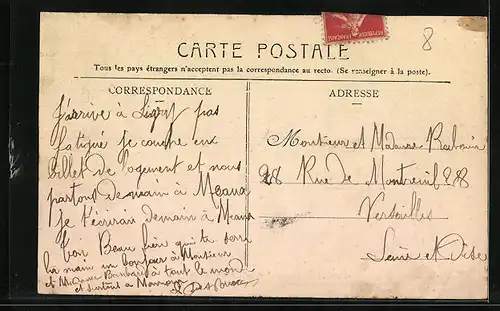 8
REPUBLIQUE FRANÇAISE
CARTE POSTALE
Tous les pays étrangers n'acceptent pas la correspondance au recto. (Se renseigner à la poste).
CORRESPONDANCE
ADRESSE
J'arrive à pas
fatigué je couche
billet de logement et nous
partons demain à
je t'écrirai demain à
ton Beau frère qui te serre
la main un bonjour à Monsieur
et Madame à tout le monde
et surtout à
Monsieur et Madame
28 Rue de Montreuil 28
Versailles
Seine et Oise